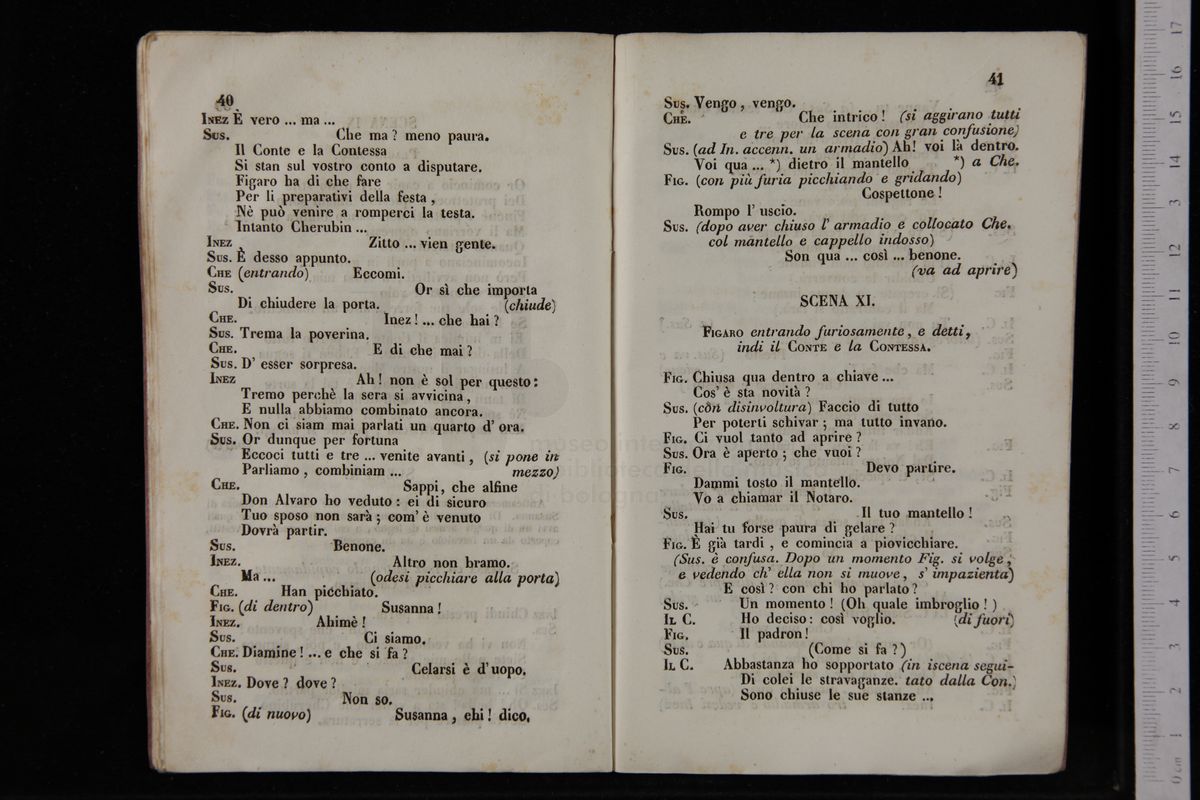 40
Inez È vero ... ma ...
Sus. Che ma ? meno paura.
Il Conte e la Contessa
Si stan sul vostro conto a disputare.
Figaro ha di che fare
Per li preparativi della festa ,
Nè può venire a romperci la testa.
Intanto Cherubin ...
Inez Zitto ... vien gente.
Sus. È desso appunto.
Che (entrando) Eccomi.
Sus. Or sì che importa
Di chiudere la porta. (chiude)
Che. Inez ! ... che hai ?
Sus. Trema la poverina.
Che. E di che mai ?
Sus. D' esser sorpresa.
Inez Ah ! non è sol per questo :
Tremo perchè la sera si avvicina ,
E nulla abbiamo combinato ancora.
Che. Non ci siam mai parlati un quarto d' ora.
Sus. Or dunque per fortuna
Eccoci tutti e tre ... venite avanti , (si pone in
Parliamo , combiniam ... mezzo)
Che. Sappi, che alfine
Don Alvaro ho veduto : ei di sicuro
Tuo sposo non sarà ; com' è venuto
Dovrà partir.
Sus. Benone.
Inez. Altro non bramo.
Ma ... (odesi picchiare alla porta)
Che. Han picchiato.
Fig. (di dentro) Susanna !
Inez. Ahimè !
Sus. Ci siamo.
Che. Diamine ! ... e che si fa ?
Sus. Celarsi è d'uopo.
Inez. Dove ? dove ?
Sus. Non so.
Fig. (di nuovo) Susanna , ehi ! dico,
41
Sus. Vengo , vengo.
Che. Che intrico ! (si aggirano tutti
e tre per la scena con gran confusione)
Sus. (ad In. accenn. un armadio) Ah! voi là dentro.
Voi qua ... *) dietro il mantello *) a Che.
Fig. (con più furia picchiando e gridando)
Cospettone !
Rompo l' uscio.
Sus. (dopo aver chiuso l' armadio e collocato Che.
col mantello e cappello indosso)
Son qua ... così ... benone.
(va ad aprire)
SCENA XI.
Figaro entrando furiosamente , e detti,
indi il Conte e la Contessa.
Fig. Chiusa qua dentro a chiave ...
Cos' è sta novità ?
Sus. (con disinvoltura) Faccio di tutto
Per poterti schivar ; ma tutto invano.
Fig. Ci vuol tanto ad aprire ?
Sus. Ora è aperto ; che vuoi ?
Fig. Devo partire.
Dammi tosto il mantello.
Vo a chiamar il Notaro.
Sus. Il tuo mantello !
Hai tu forse paura di gelare ?
Fig. È già tardi , e comincia a piovicchiare.
(Sus. è confusa. Dopo un momento Fig. si volge ,
e vedendo ch' ella non si muove , s' impazienta)
E così ? con chi ho parlato ?
Sus. Un momento ! (Oh quale imbroglio ! )
Il C. Ho deciso : così voglio. (di fuori)
Fig. Il padron !
Sus. (Come si fa ?)
Il C. Abbastanza ho sopportato (in iscena segui-
Di colei le stravaganze. tato dalla Con.)
Sono chiuse le sue stanze ...